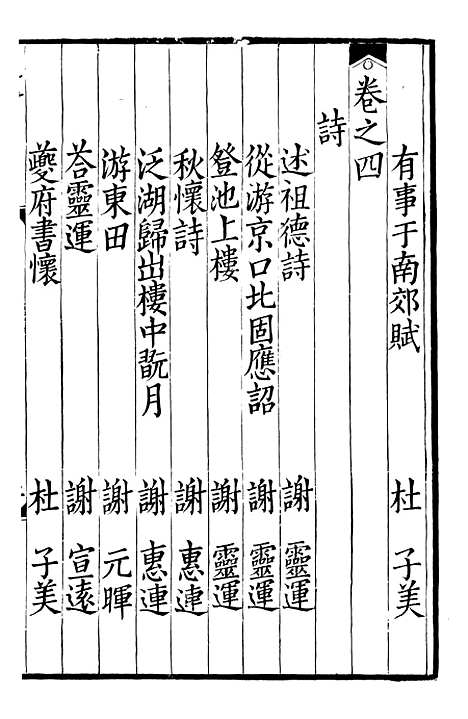 有事于南郊賦 杜子美
卷之四
詩
述祖德詩 謝靈運
從游京口北固應詔 謝靈運
登池上樓 謝靈運
秋懷詩 謝惠連
泛湖歸出樓中翫月 謝惠連
游東田 謝元暉
荅靈運 謝宣遠
夔府書懷 杜子美